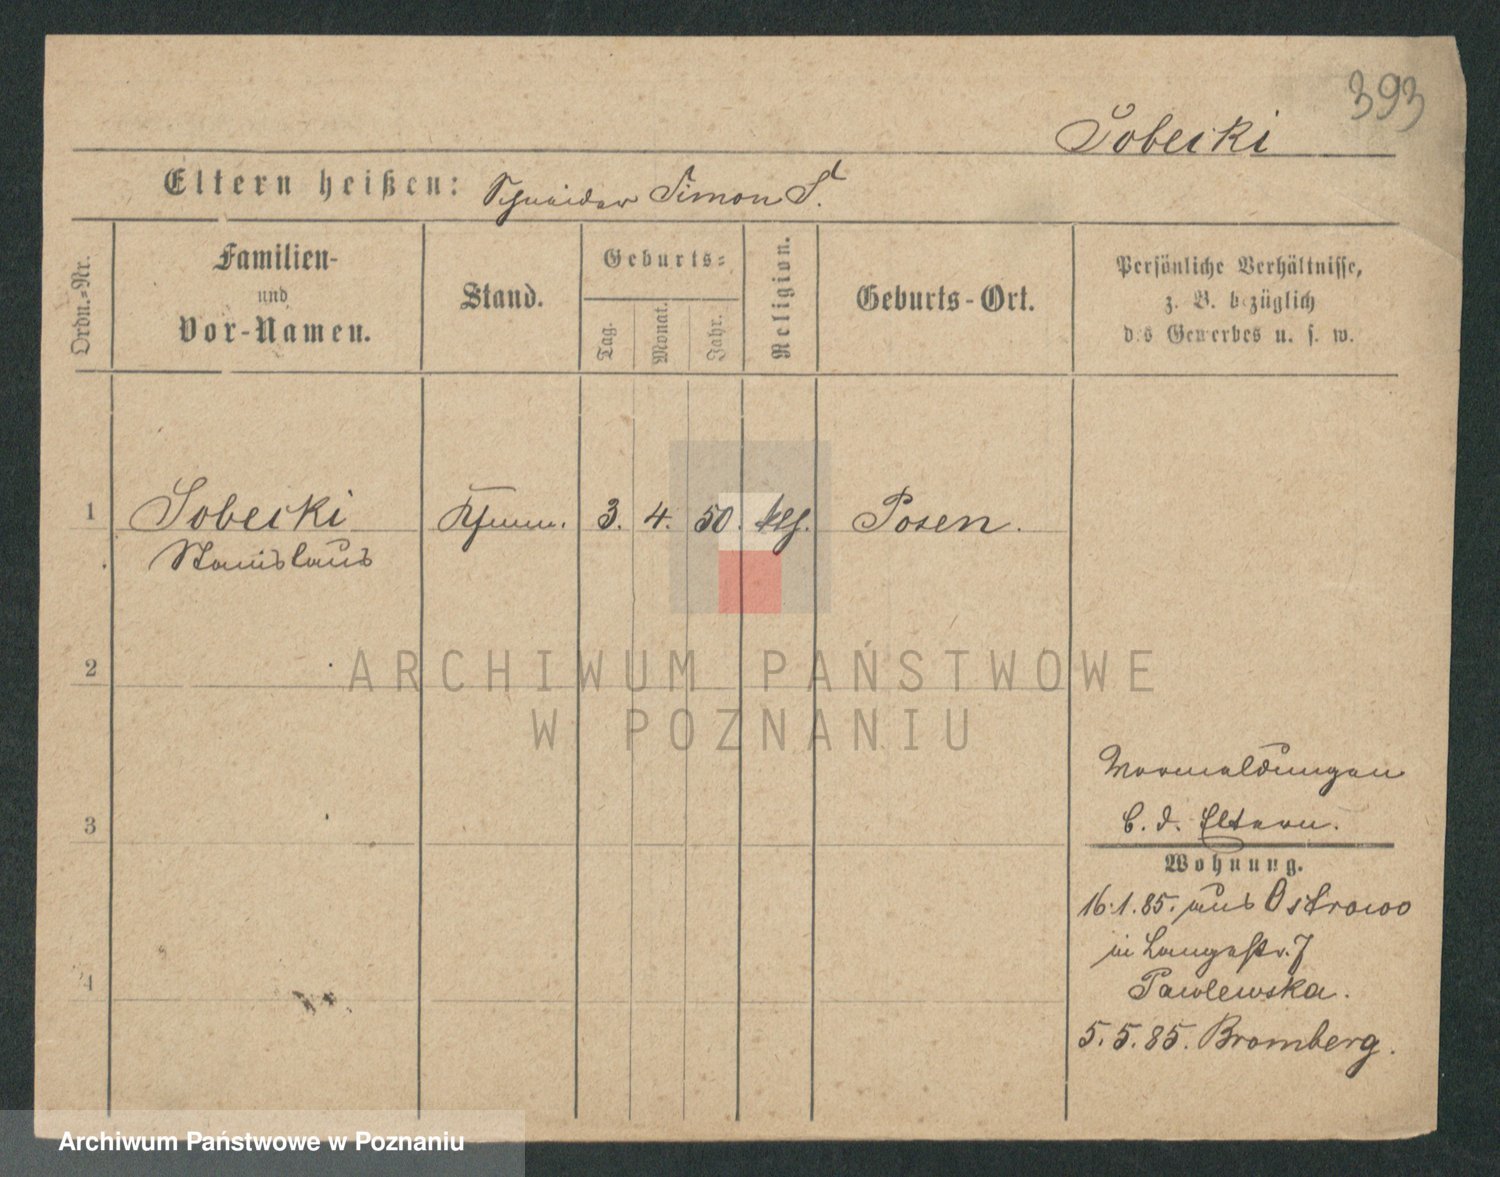 393
Sobecki
Eltern heißen: Schneider Simon S.
Ordn.-Nr.
Familien-
und
Vor-Namen.
Stand.
Geburts-
Tag.
Monat.
Jahr.
Religion.
Geburts-Ort.
Persönliche Verhältnisse,
z. B. bezüglich
des Gewerbes u. s. w.
1 Sobecki 3. 4. 50. Posen.
Stanislaus
2
ARCHIWUM PAŃSTWOWE
W POZNANIU
3
Vormeldungen
b. d. Eltern.
Wohnung.
16.1.85. aus Ostrowo
in Langestr. 7
4
Pawlewska.
5.5.85. Bromberg.
Archiwum Państwowe w Poznaniu